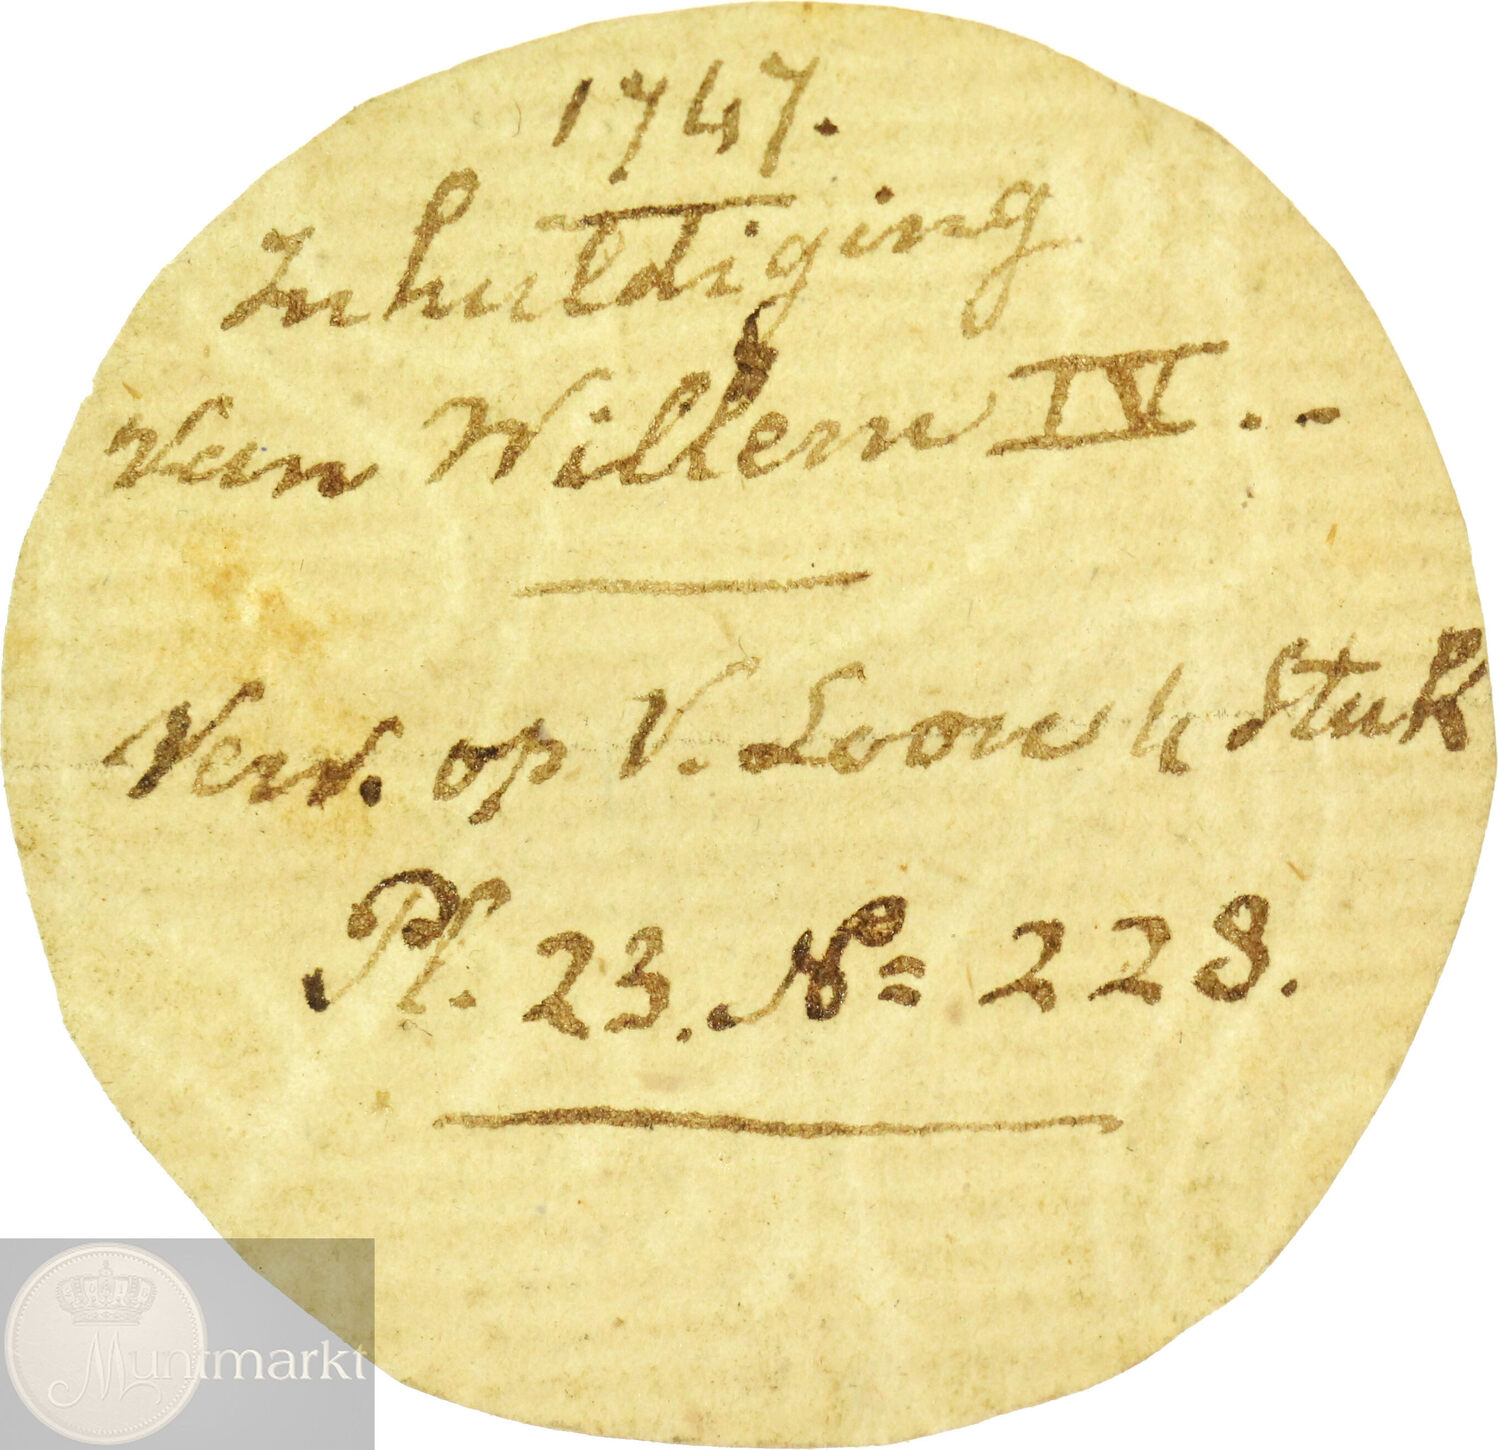 1747.
Inhuldiging
Van Willem IV...
Verv. op V. Loon 4 Stuk
Pl. 23. No= 228.
Muntmarkt